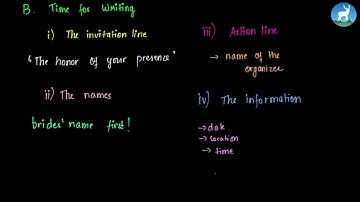 B. Time for Writing
i) The invitation line
"The honor of your presence"
ii) The names
brides' name first!
iii) Action line
→ name of the
organizer
iv) The information
→ date
→ location
→ time